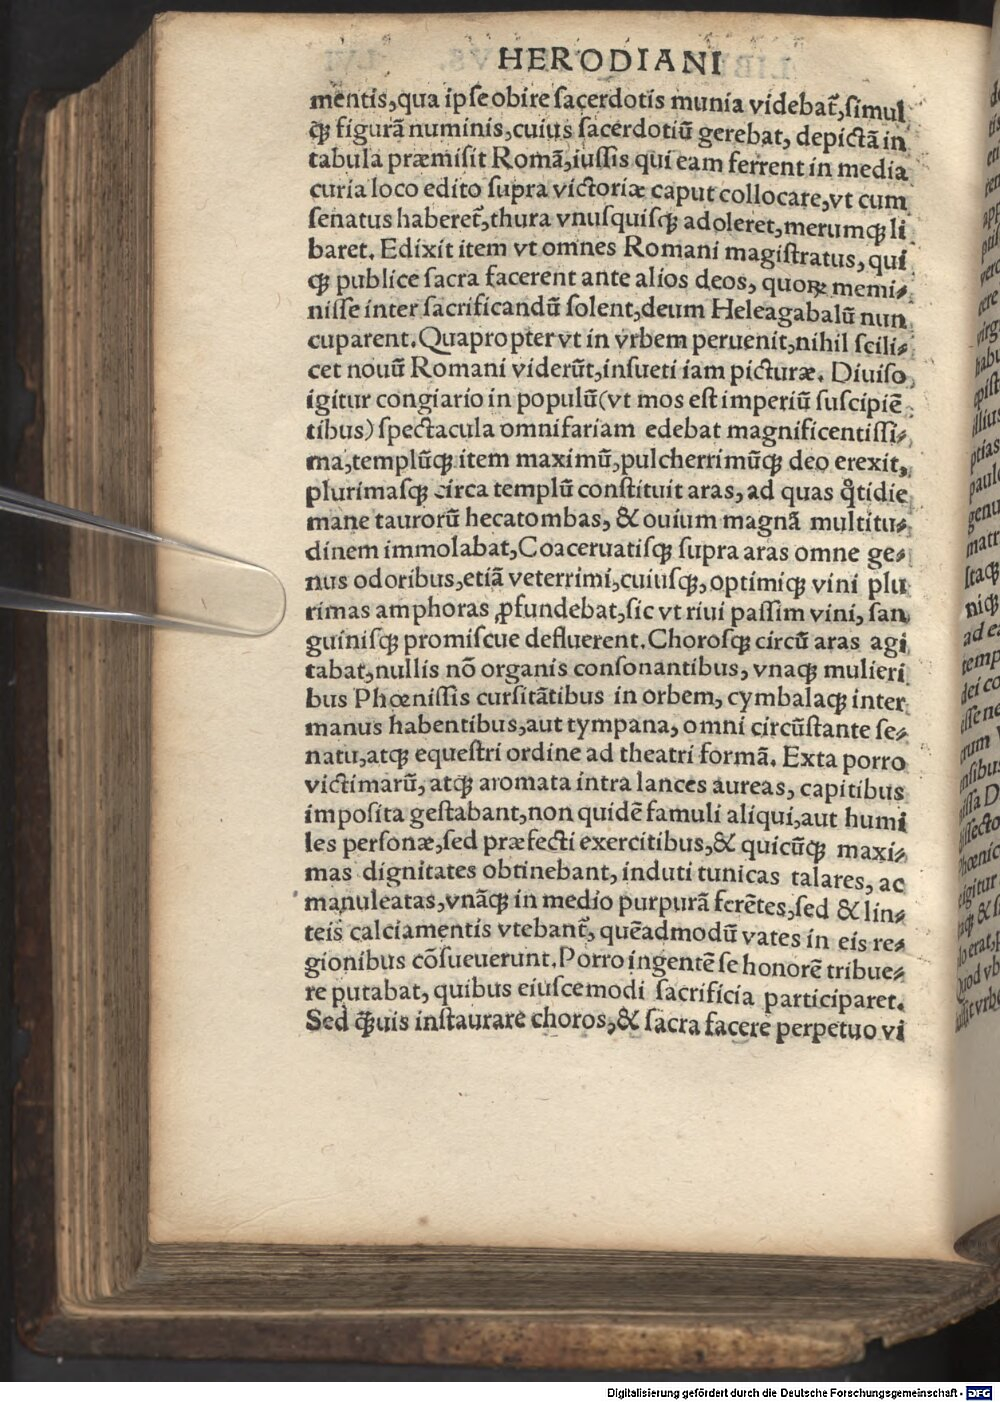 HERODIANI
mentis,qua ipſe obire ſacerdotis munia videbat̃,ſimul
ꝙ̃ figurã numinis,cuius ſacerdotiũ gerebat, depictã in
tabula præmiſit Romã,iuſſis qui eam ferrent in media
curia loco edito ſupra victoriæ caput collocare,vt cum
ſenatus haberet̃,thura vnuſquiſqꝫ adoleret,merumqꝫ li
baret. Edixit item vt omnes Romani magiſtratus, qui
qꝫ publice ſacra facerent ante alios deos, quoꝝ memi⸗
niſſe inter ſacrificandũ ſolent,deum Heleagabalũ nun
cuparent.Quapropter vt in vrbem peruenit,nihil ſcili⸗
cet nouũ Romani viderũt,inſueti iam picturæ. Diuiſo
igitur congiario in populũ(vt mos eſt imperiũ ſuſcipiẽ
tibus) ſpectacula omnifariam edebat magnificentiſſi⸗
ma,templũqꝫ item maximũ,pulcherrimũqꝫ deo erexit,
plurimaſqꝫ circa templũ conſtituit aras, ad quas q̊tidie
mane taurorũ hecatombas, & ouium magnã multitu⸗
dinem immolabat,Coaceruatiſqꝫ ſupra aras omne ge⸗
nus odoribus,etiã veterrimi,cuiuſqꝫ,optimiqꝫ vini plu
rimas amphoras ꝓfundebat,ſic vt riui paſſim vini, ſan
guiniſqꝫ promiſcue defluerent.Choroſqꝫ circũ aras agi
tabat,nullis nõ organis conſonantibus, vnaqꝫ mulieri
bus Phœniſſis curſitãtibus in orbem, cymbalaqꝫ inter
manus habentibus,aut tympana, omni circũſtante ſe⸗
natu,atqꝫ equeſtri ordine ad theatri formã. Exta porro
victimarũ, atqꝫ aromata intra lances aureas, capitibus
impoſita geſtabant,non quidẽ famuli aliqui,aut humi
les perſonæ,ſed præfecti exercitibus,& quicũqꝫ maxi⸗
mas dignitates obtinebant, induti tunicas talares, ac
manuleatas,vnãqꝫ in medio purpurã ferẽtes,ſed & lin⸗
teis calciamentis vtebant̃, quẽadmodũ vates in eis re⸗
gionibus cõſueuerunt.Porro ingentẽ ſe honorẽ tribue⸗
re putabat, quibus eiuſcemodi ſacrificia participaret.
Sed ꝙ̃uis inſtaurare choros,& ſacra facere perpetuo vi
Digitalisierung gefördert durch die Deutsche Forschungsgemeinschaft - DFG